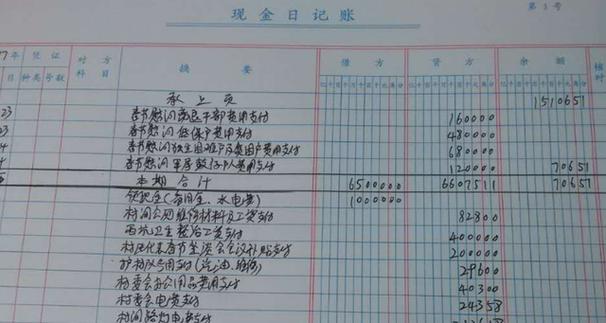 现金日记账
第 3 号
7年 凭证 对方科目 摘要 借方 贷方 余额 核对
日 种类 号数 亿千百十万千百十元角分 亿千百十万千百十元角分 亿千百十万千百十元角分
承上页 1510651
23 春节慰问离退干部费用支付 160000
23 春节慰问低保户费用支付 480000
春节慰问 困难户及贫困户费用支付 680000
4 春节慰问军属 费用支付 120000 70651
本期合计 6500000 6607511 70651
领现金(备用金、水电费) 1000000
村间公路维修材料及工资支付 82800
卫生整治工资支付 400000
村民代表春节座谈会会议补贴支付 200000
护村队费用支付(汽油、维修) 29600
村委会办公用品费用支付 40300
村委会电费支付 24358
村间路灯电费支付